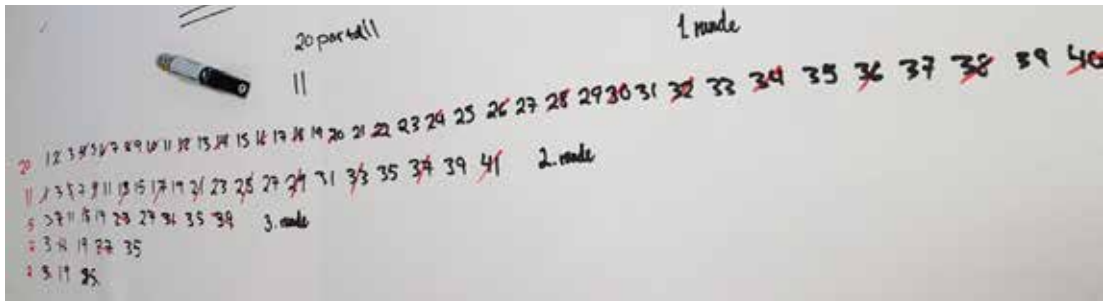 20 partall
11
1 runde
20 1 2 3 4 5 6 7 8 9 10 11 12 13 14 15 16 17 18 19 20 21 22 23 24 25 26 27 28 29 30 31 32 33 34 35 36 37 38 39 40
11 1 3 5 7 9 11 13 15 17 19 21 23 25 27 29 31 33 35 37 39 41 2. runde
5 3 7 11 15 19 23 27 31 35 39 3. runde
3 11 19 27 35
3 19 35